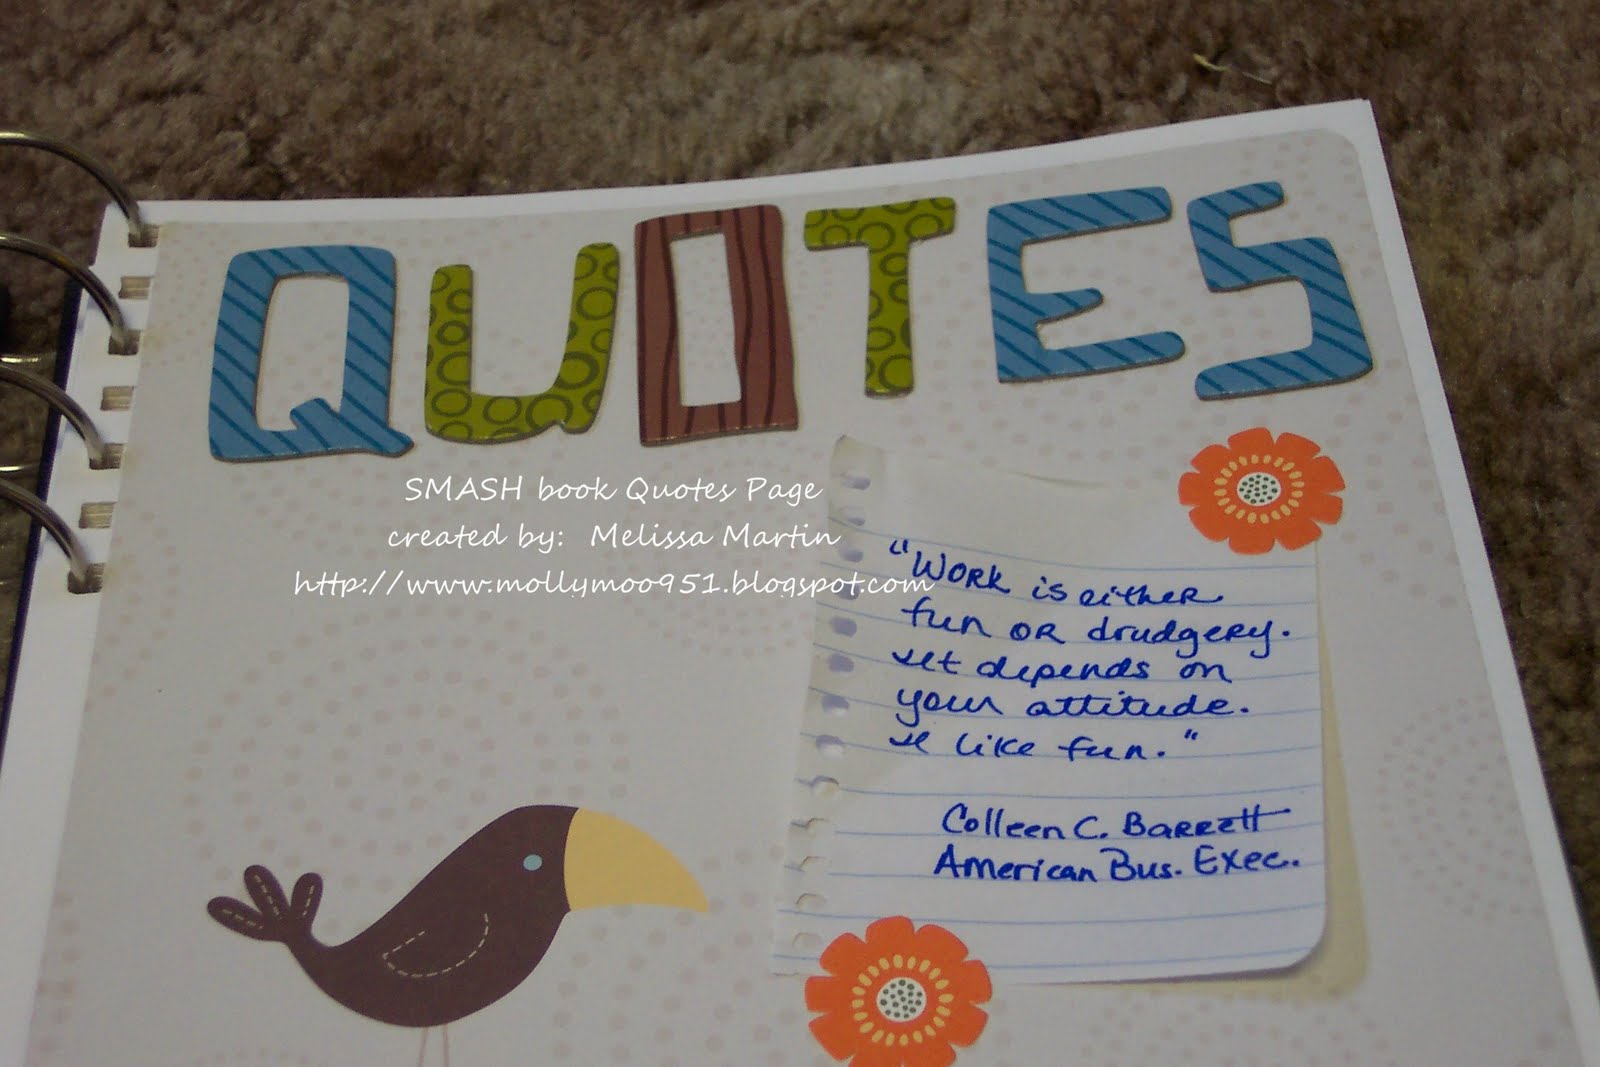 QUOTES
SMASH book Quotes Page
created by: Melissa Martin
http://www.mollymoo951.blogspot.com
"Work is either
fun or drudgery.
It depends on
your attitude.
I like fun."
Colleen C. Barrett
American Bus. Exec.